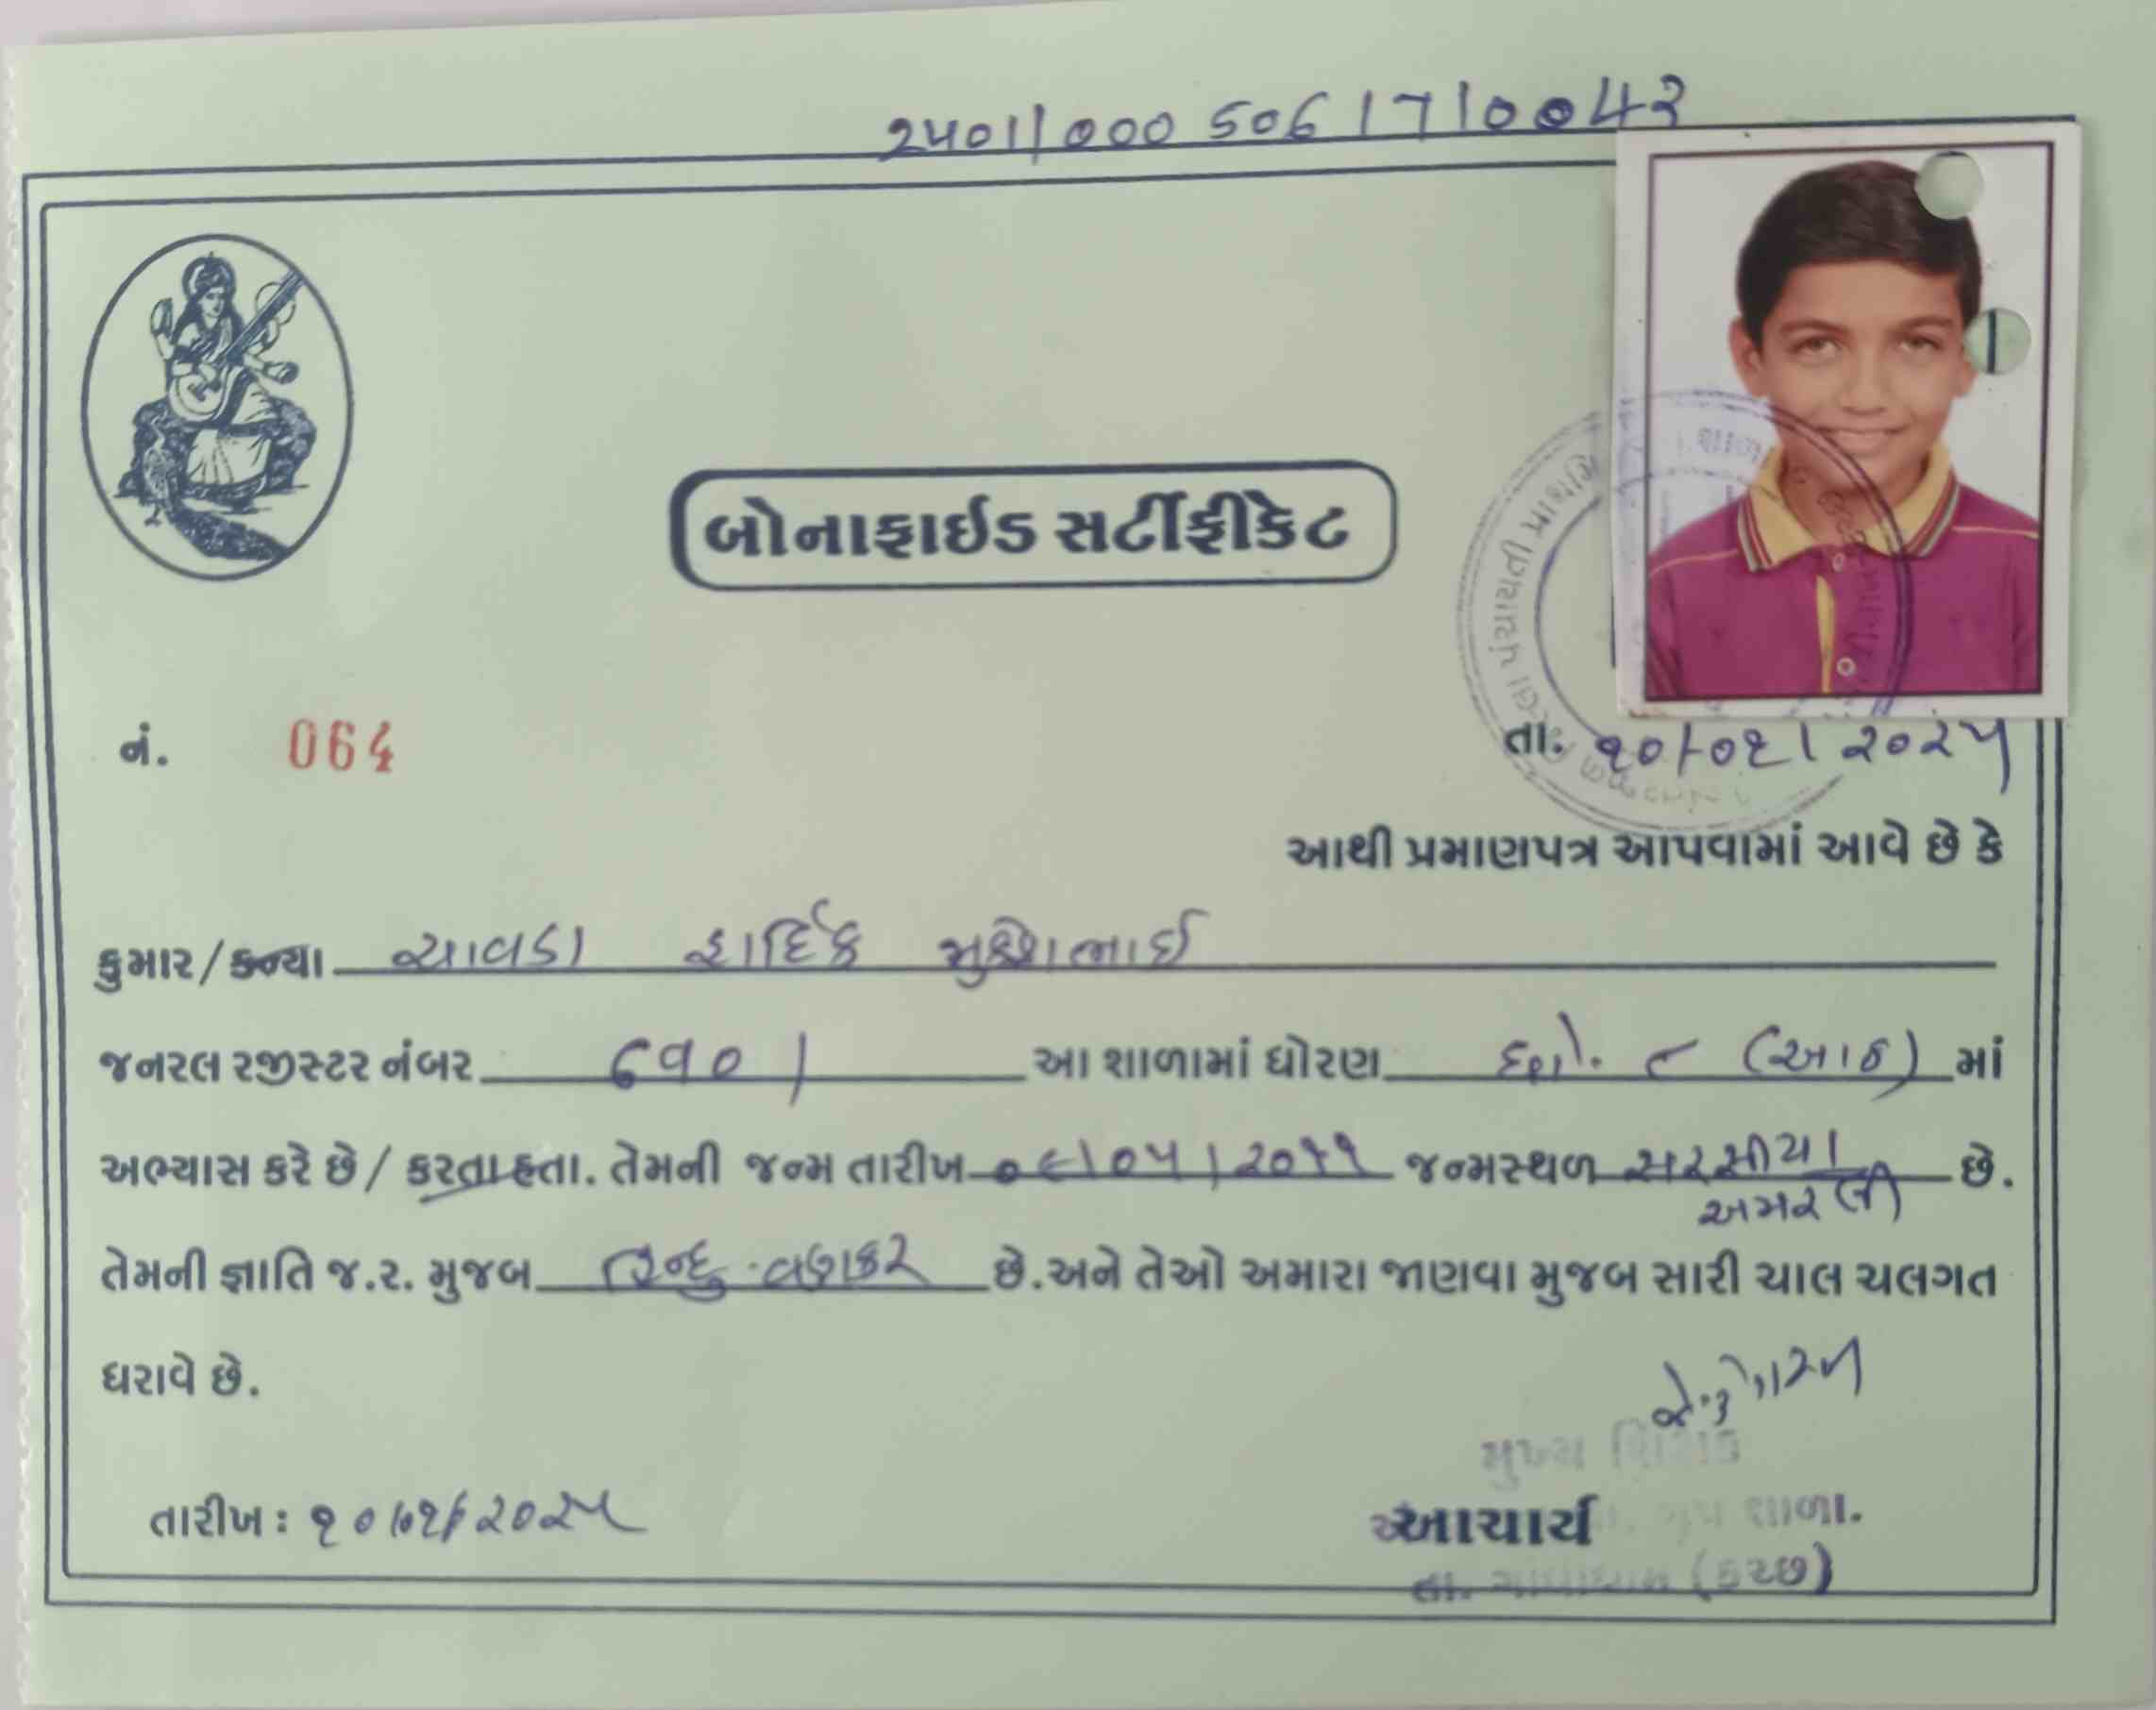 24011000506171004૨
બોનાફાઇડ સર્ટીફીકેટ
નં. 064
તા. ૧૦/૦૧/૨૦૨૫
આથી પ્રમાણપત્ર આપવામાં આવે છે કે
કુમાર/કન્યા ચાવડા હાર્દિક મુકેશભાઈ
જનરલ રજીસ્ટર નંબર ૬૧૦૧ આ શાળામાં ધોરણ ધો. ૮ (આઠ) માં
અભ્યાસ કરે છે / કરતા હતા. તેમની જન્મ તારીખ ૦૯/૦૫/૨૦૧૧ જન્મસ્થળ સરસીયા છે.
અમરેલી
તેમની જ્ઞાતિ જ.ર. મુજબ હિન્દુ વણકર છે.અને તેઓ અમારા જાણવા મુજબ સારી ચાલ ચલગત
ધરાવે છે.
મુખ્ય શિક્ષક
તારીખ: ૧૦/૦૧/૨૦૨૫
આચાર્ય
શાળા.
તા. ગાંધીધામ (કચ્છ)